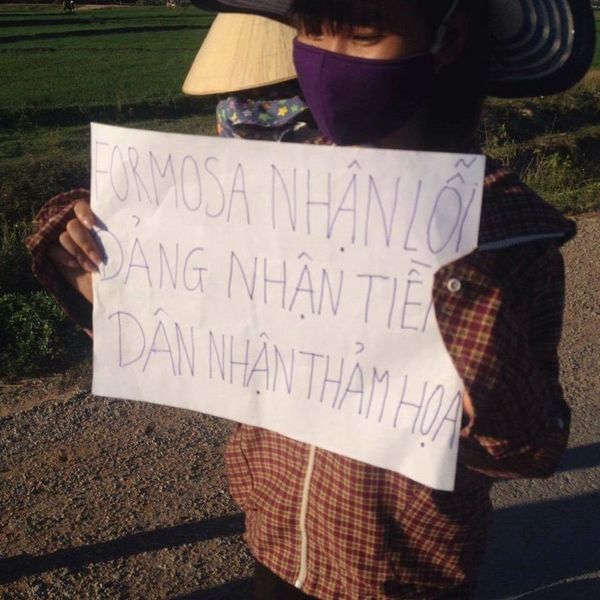 FORMOSA NHẬN LỖI
ĐẢNG NHẬN TIỀN
DÂN NHẬN THẢM HỌA